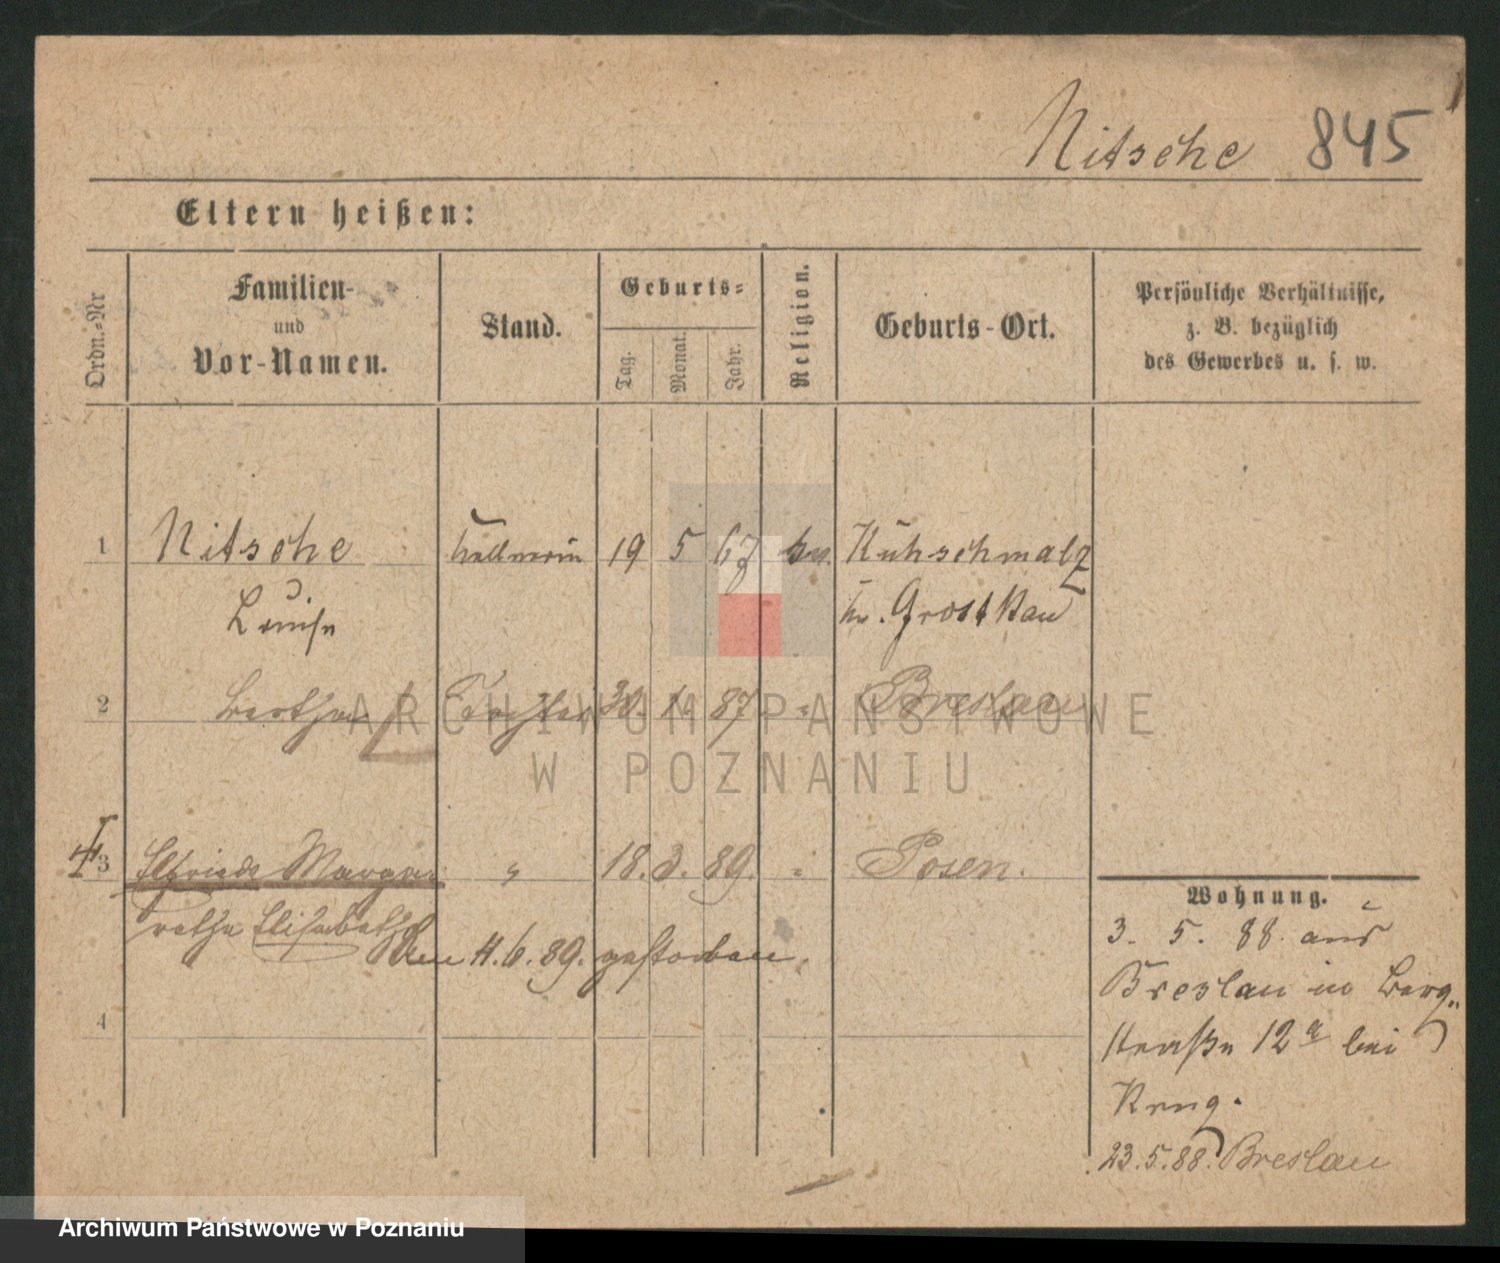 Nitsche 845
Eltern heißen:
Ordn.-Nr
Familien-
und
Vor-Namen.
Stand.
Geburts-
Tag.
Monat.
Jahr.
Religion.
Geburts-Ort.
Persönliche Verhältnisse,
z. B. bezüglich
des Gewerbes u. s. w.
1 Nitsche Kellnerin 19 5 67 Kühschmalz
Luise Kr. Grottkau
2 Bertha Tochter 87 " Breslau
ARCHIWUM PAŃSTWOWE
W POZNANIU
3 Elfriede Marga- " 18. 3. 89. " Posen.
rethe Elisabeth
den 4. 6. 89. gestorben.
4
Wohnung.
3. 5. 88. aus
Breslau in Berg-
straße 12a bei
Krug.
23. 5. 88. Breslau
Archiwum Państwowe w Poznaniu